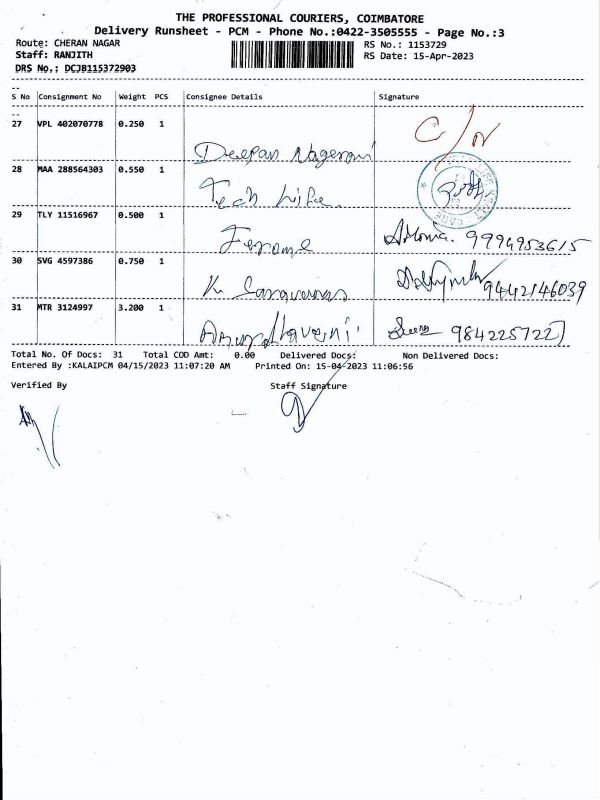 THE PROFESSIONAL COURIERS, COIMBATORE
Delivery Runsheet - PCM - Phone No.:0422-3505555 - Page No.:3
Route: CHERAN NAGAR RS No.: 1153729
Staff: RANJITH RS Date: 15-Apr-2023
DRS No.: DCJB115372903
S No Consignment No Weight PCS Consignee Details Signature
27 VPL 402070778 0.250 1 C/N
Deepan Nageroni
28 MAA 288564303 0.550 1
Tech Life
29 TLY 11516967 0.500 1
Jerome 9994953615
30 SVG 4597386 0.750 1
K 9442146039
31 MTR 3124997 3.200 1
9842257227
Total No. Of Docs: 31 Total COD Amt: 0.00 Delivered Docs: Non Delivered Docs:
Entered By :KALAIPCM 04/15/2023 11:07:20 AM Printed On: 15-04-2023 11:06:56
Verified By Staff Signature